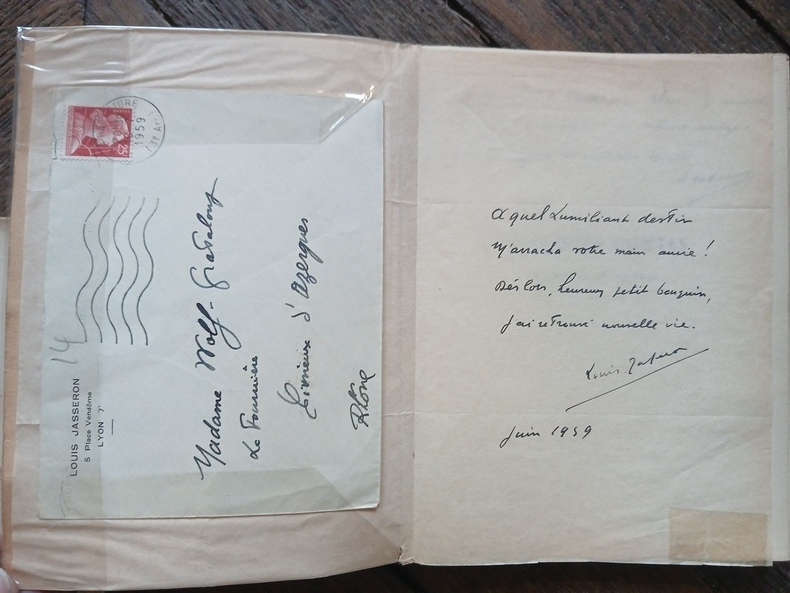 25
1959
14
LOUIS JASSERON
5 Place Vendôme
LYON 7ᵉ
Madame Wolf-
La
Civrieux d'Azergues
Rhône
A quel humiliant destin
M'arracha votre main amie !
Dès lors, heureux petit bouquin,
J'ai retrouvé nouvelle vie.
Louis Jasseron
Juin 1959